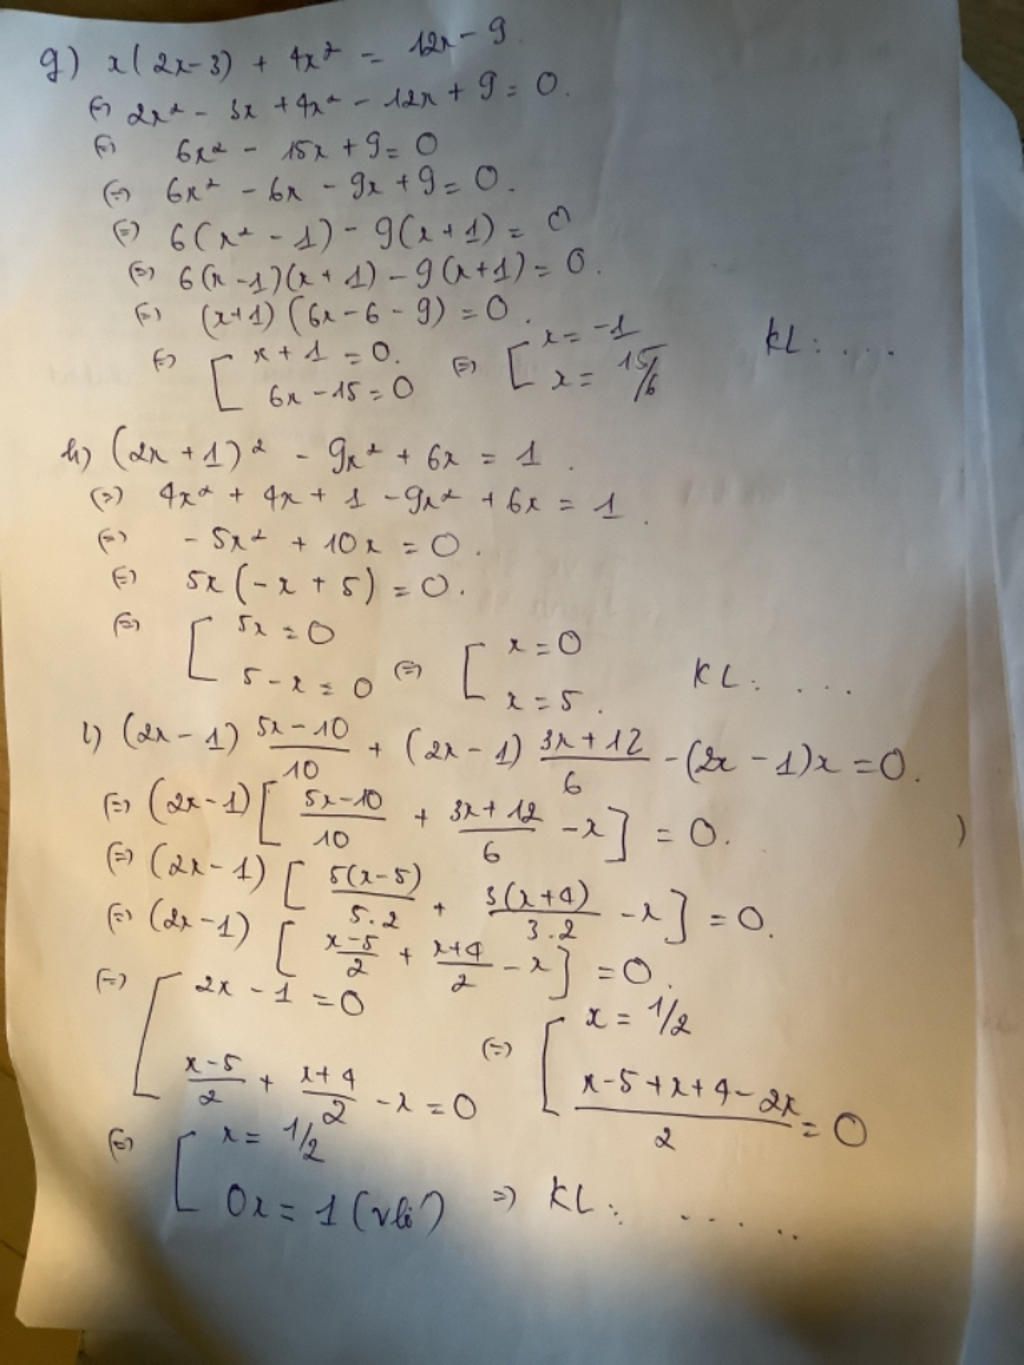 g) x(2x-3) + 4x² = 12x - 9
(=) 2x² - 3x + 4x² - 12x + 9 = 0.
(=) 6x² - 15x + 9 = 0
(=) 6x² - 6x - 9x + 9 = 0.
(=) 6(x² - 1) - 9(x+1) = 0
(=) 6(x-1)(x+1) - 9(x+1) = 0.
(=) (x+1)(6x - 6 - 9) = 0.
(=) [ x + 1 = 0. (=) [ x = -1 KL: ....
6x - 15 = 0 x = 15/6
h) (2x + 1)² - 9x² + 6x = 1.
(=) 4x² + 4x + 1 - 9x² + 6x = 1.
(=) - 5x² + 10x = 0.
(=) 5x(-x + 5) = 0.
(=) [ 5x = 0 (=) [ x = 0 KL: ....
5 - x = 0 x = 5.
i) (2x - 1) (5x - 10)/10 + (2x - 1) (3x + 12)/6 - (2x - 1)x = 0.
(=) (2x - 1) [ (5x - 10)/10 + (3x + 12)/6 - x ] = 0.
(=) (2x - 1) [ 5(x-5)/5.2 + 3(x+4)/3.2 - x ] = 0.
(=) (2x - 1) [ (x-5)/2 + (x+4)/2 - x ] = 0.
(=) [ 2x - 1 = 0 (=) [ x = 1/2
(x-5)/2 + (x+4)/2 - x = 0 (x - 5 + x + 4 - 2x)/2 = 0
(=) [ x = 1/2
0x = 1 (vli) => KL: .....